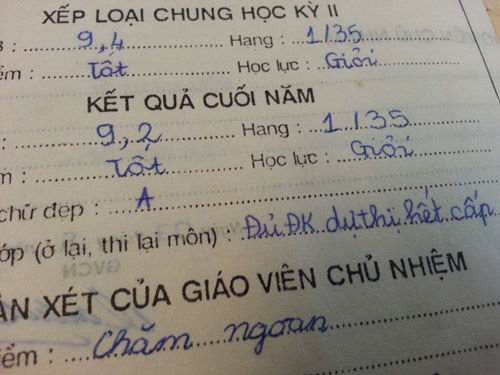 XẾP LOẠI CHUNG HỌC KỲ II
: 9,4 Hạng : 1/35
ểm : Tốt Học lực : Giỏi
KẾT QUẢ CUỐI NĂM
: 9,2 Hạng : 1/35
m : Tốt Học lực : Giỏi
chữ đẹp : A
ớp (ở lại, thi lại môn) : Đủ ĐK dự thi hết cấp
ẬN XÉT CỦA GIÁO VIÊN CHỦ NHIỆM
iểm : Chăm ngoan